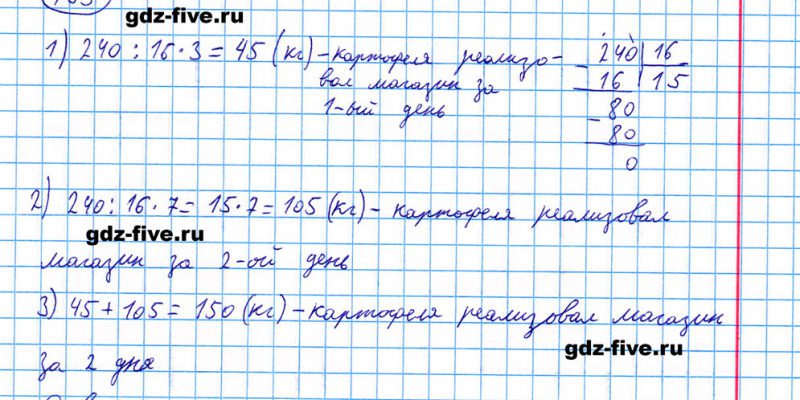 gdz-five.ru
1) 240 : 16 · 3 = 45 (кг) – картофеля реализо-
вал магазин за
1-ый день
240 16
16 15
80
80
0
2) 240 : 16 · 7 = 15 · 7 = 105 (кг) – картофеля реализовал
gdz-five.ru
магазин за 2-ой день
3) 45 + 105 = 150 (кг) – картофеля реализовал магазин
gdz-five.ru
за 2 дня